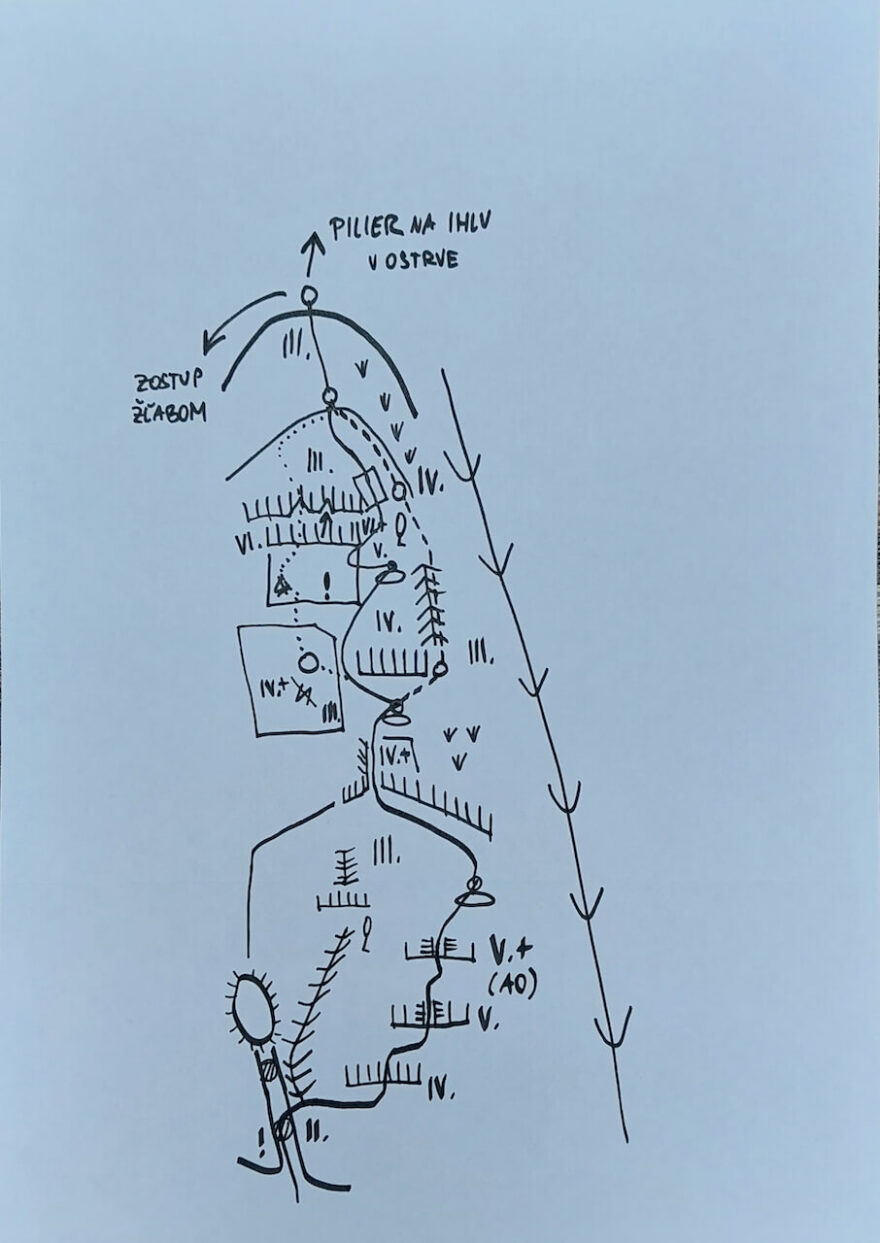 PILIER NA IHLU
V OSTRVE
III.
ZOSTUP
ŽĽABOM
III.
IV.
VI.
V.
!
IV.
III.
IV.+
III.
IV.+
III.
V.+
(A0)
V.
IV.
!
II.